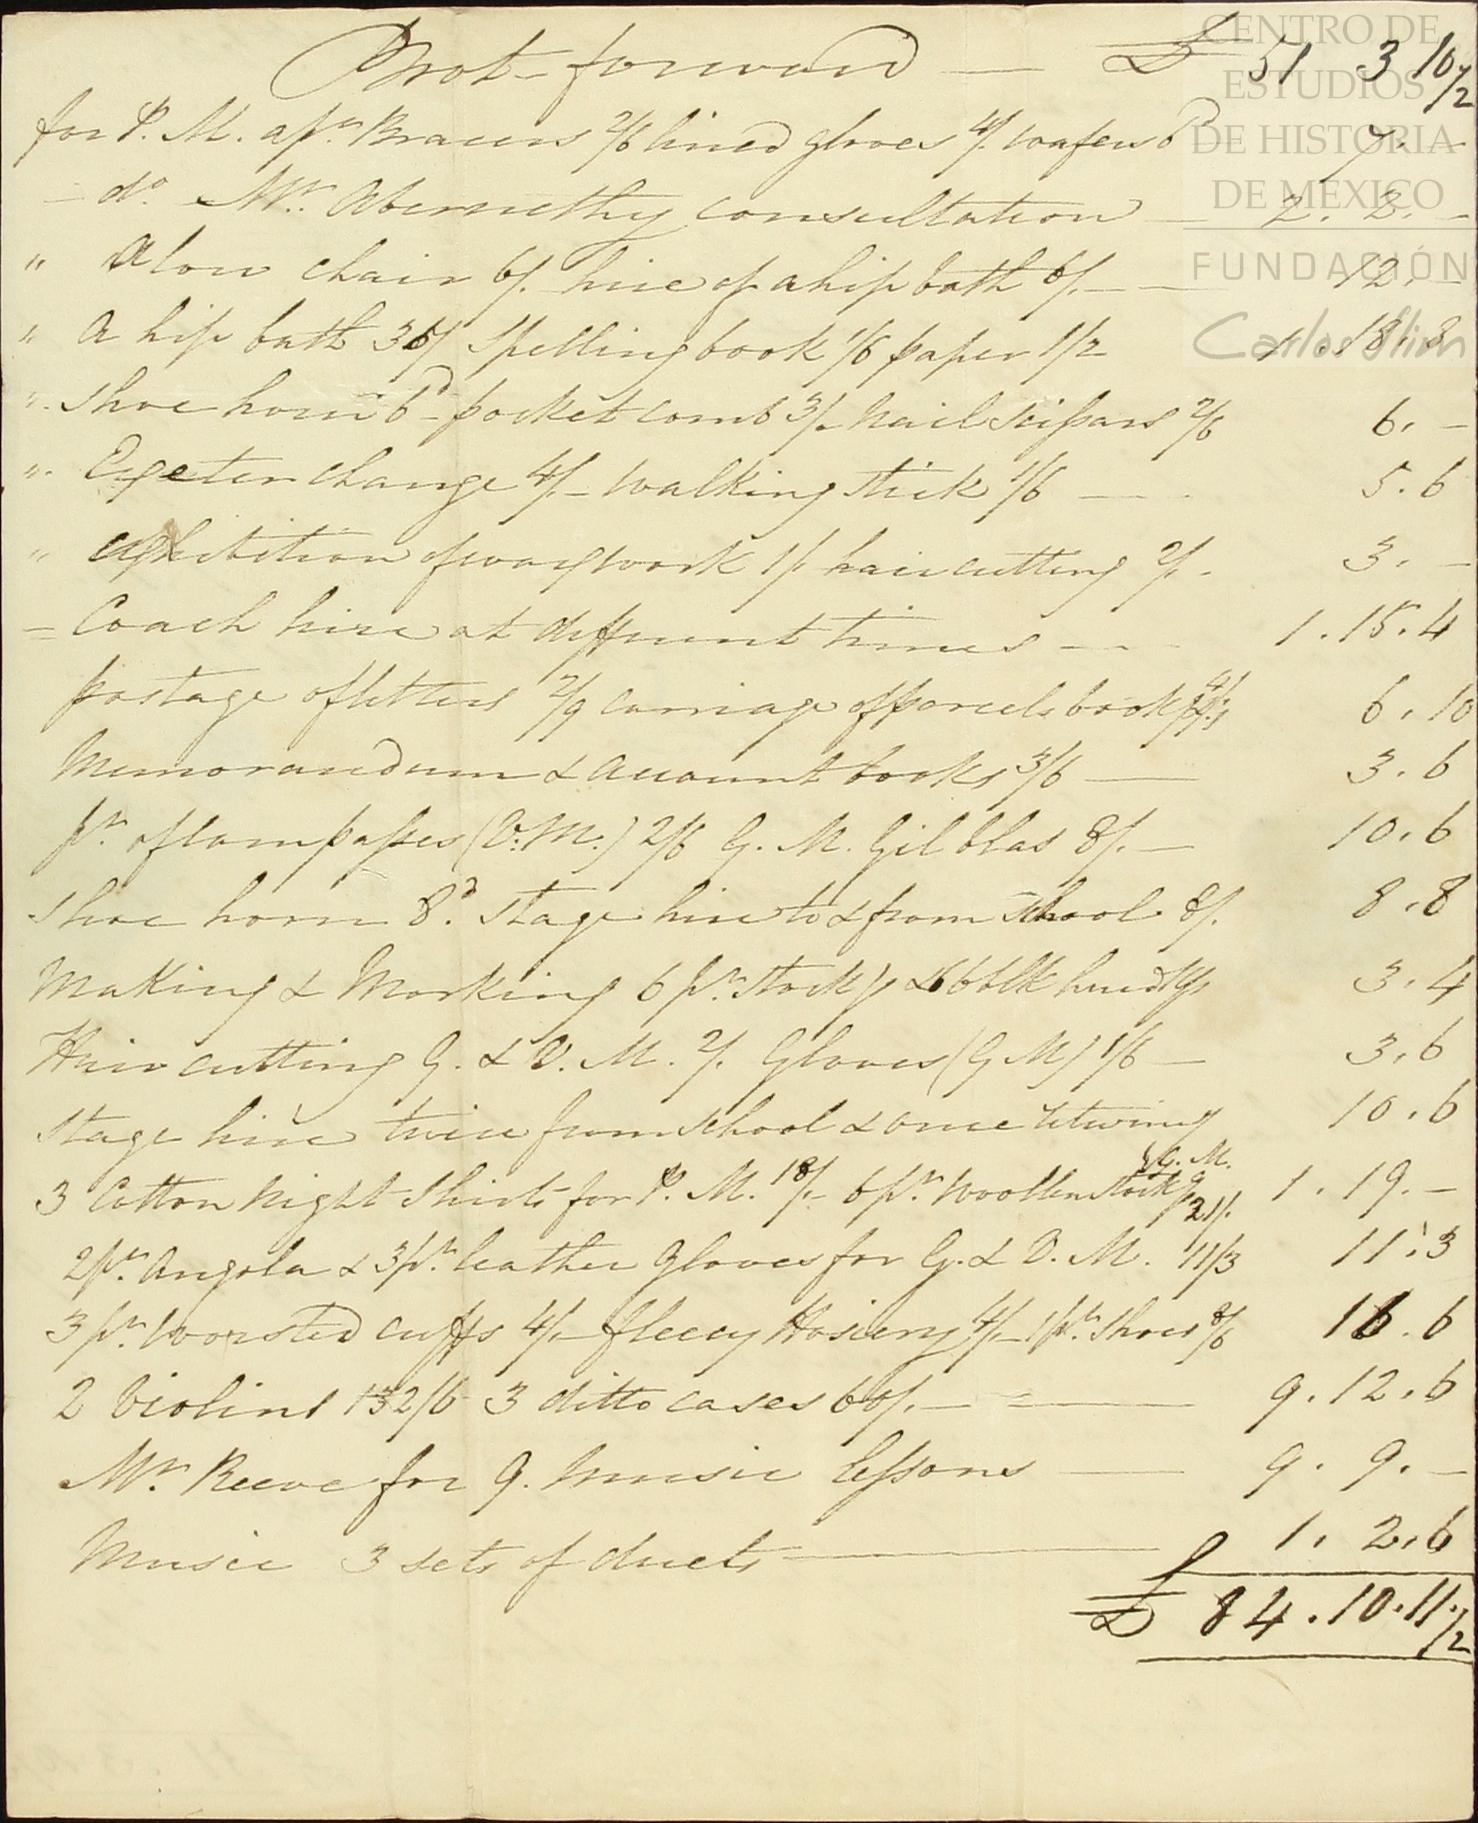 Brot forward — £ 51 3 10 1/2
for P. M. a pr. Bracers 2/6 lined gloves 4/. wafers 6d 7. –
– do. Mr. Abernethy consultation — 2. 2. –
" A low chair 6/. hire of a hip bath 6/. — 12. –
" A hip bath 36/ Spelling book 1/6 paper 1/2 1. 18. 8
" Shoe horn 6d – pocket comb 3/. Nail scissars 2/6 6. –
" Exeter change 4/– Walking stick 1/6 — 5. 6
" exhibition of wax work 1/ hair cutting 2/. 3. –
= Coach hire at different times — 1. 15. 4
postage of letters 2/9 carriage of parcels book 6. 10
Memorandum & account books 3/6 — 3. 6
pr. of compasses (V. M.) 2/6 G. M. Gil blas 8/. — 10. 6
Shoe horn 8d. Stage hire to & from school 8/. 8. 8
Making & Marking 6 pr. stockgs & 6 blk 3. 4
Hair cutting G. & V. M. 2/. Gloves (G M) 1/6 — 3. 6
Stage hire twice from school & once 10. 6
G. M.
3 Cotton Night Shirts for P. M. 18/– 6 pr. Woollen Stockgs 21/. 1. 19. –
2 pr. Angola & 3 pr. leather Gloves for G. & V. M. 11/3 11. 3
3 pr. Worsted cuffs 4/– fleecy Hosiery 4/– 1 pr. Shoes 8/6 16. 6
2 Violins 132/6 3 ditto cases 60/. — 9. 12. 6
Mr. Reeve for 9. Music lessons — 9. 9. –
Music 3 sets of duets — 1. 2. 6
£ 84. 10. 11 1/2
CENTRO DE
ESTUDIOS
DE HISTORIA
DE MÉXICO
FUNDACIÓN
Carlos Slim